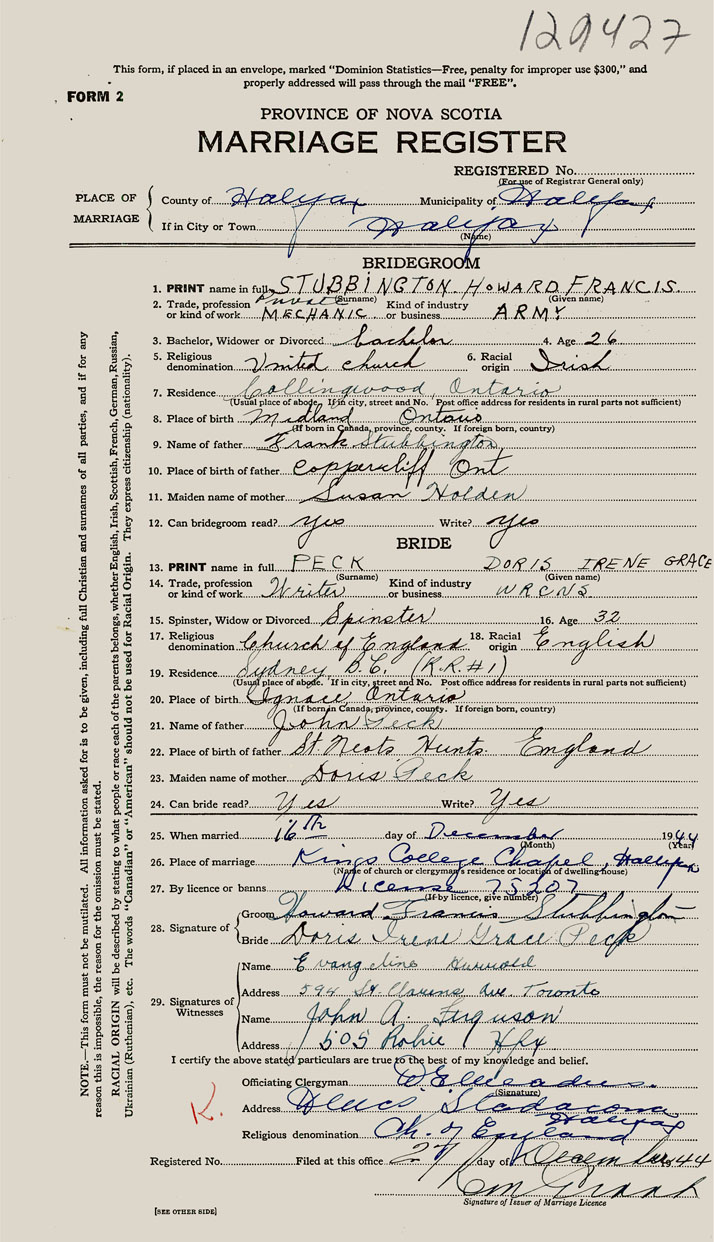 129427
This form, if placed in an envelope, marked "Dominion Statistics—Free, penalty for improper use $300," and
properly addressed will pass through the mail "FREE".
FORM 2
PROVINCE OF NOVA SCOTIA
MARRIAGE REGISTER
REGISTERED No.
(For use of Registrar General only)
PLACE OF MARRIAGE
County of Halifax Municipality of Halifax
If in City or Town Halifax
(Name)
BRIDEGROOM
1. PRINT name in full STUBBINGTON HOWARD FRANCIS.
(Surname) (Given name)
Private
2. Trade, profession or kind of work MECHANIC Kind of industry or business ARMY
3. Bachelor, Widower or Divorced bachelor 4. Age 26
5. Religious denomination United church 6. Racial origin Irish
7. Residence Collingwood Ontario
(Usual place of abode. If in city, street and No. Post office address for residents in rural parts not sufficient)
8. Place of birth Midland Ontario
(If born in Canada, province, county. If foreign born, country)
9. Name of father Frank Stubbington
10. Place of birth of father Coppercliff Ont
11. Maiden name of mother Susan Holden
12. Can bridegroom read? yes Write? yes
BRIDE
13. PRINT name in full PECK DORIS IRENE GRACE
(Surname) (Given name)
14. Trade, profession or kind of work Writer Kind of industry or business WRCNS
15. Spinster, Widow or Divorced Spinster 16. Age 32
17. Religious denomination Church of England 18. Racial origin English
19. Residence Sydney B.C. (R.R.#1)
(Usual place of abode. If in city, street and No. Post office address for residents in rural parts not sufficient)
20. Place of birth Ignace Ontario
(If born in Canada, province, county. If foreign born, country)
21. Name of father John Peck
22. Place of birth of father St. Neots Hunts. England
23. Maiden name of mother Doris Peck
24. Can bride read? Yes Write? Yes
25. When married 16th day of December 1944
(Month) (Year)
26. Place of marriage Kings College Chapel, Halifax
(Name of church or clergyman's residence or location of dwelling house)
27. By licence or banns License 75207
(If by licence, give number)
28. Signature of
Groom Howard Francis Stubbington
Bride Doris Irene Grace Peck
29. Signatures of Witnesses
Name Evangeline
Address 594 St. Clarens Ave. Toronto
Name John A. Ferguson
Address 505 Robie Hfx
I certify the above stated particulars are true to the best of my knowledge and belief.
Officiating Clergyman
(Signature)
Address Stadacona
Halifax
Religious denomination Ch. of England
Registered No. Filed at this office 27 day of December 1944
Signature of Issuer of Marriage Licence
[SEE OTHER SIDE]
K.
NOTE.—This form must not be mutilated. All information asked for is to be given, including full Christian and surnames of all parties, and if for any
reason this is impossible, the reason for the omission must be stated.
RACIAL ORIGIN will be described by stating to what people or race each of the parents belongs, whether English, Irish, Scottish, French, German, Russian,
Ukrainian (Ruthenian), etc. The words "Canadian" or "American" should not be used for Racial Origin. They express citizenship (nationality).